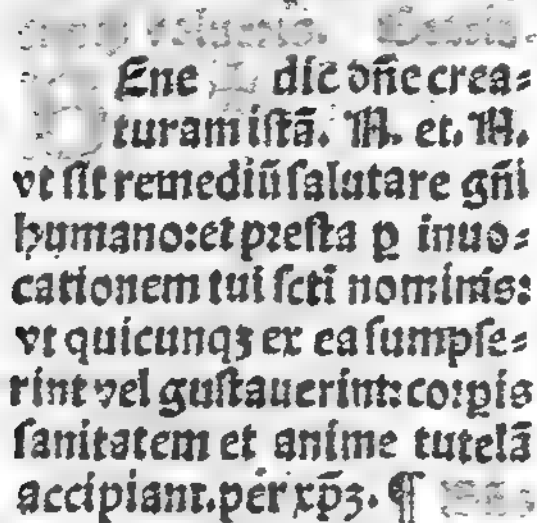 BEne dic dn̄e crea⸗
turam istā. N. et. N.
vt sit remediū salutare gn̄i
humano: et presta ꝑ inuo⸗
cationem tui scti nominis:
vt quicunqꝫ ex ea sumpse⸗
rint vel gustauerint: corꝑis
sanitatem et anime tutelā
accipiant. per xp̄ꝫ. ¶